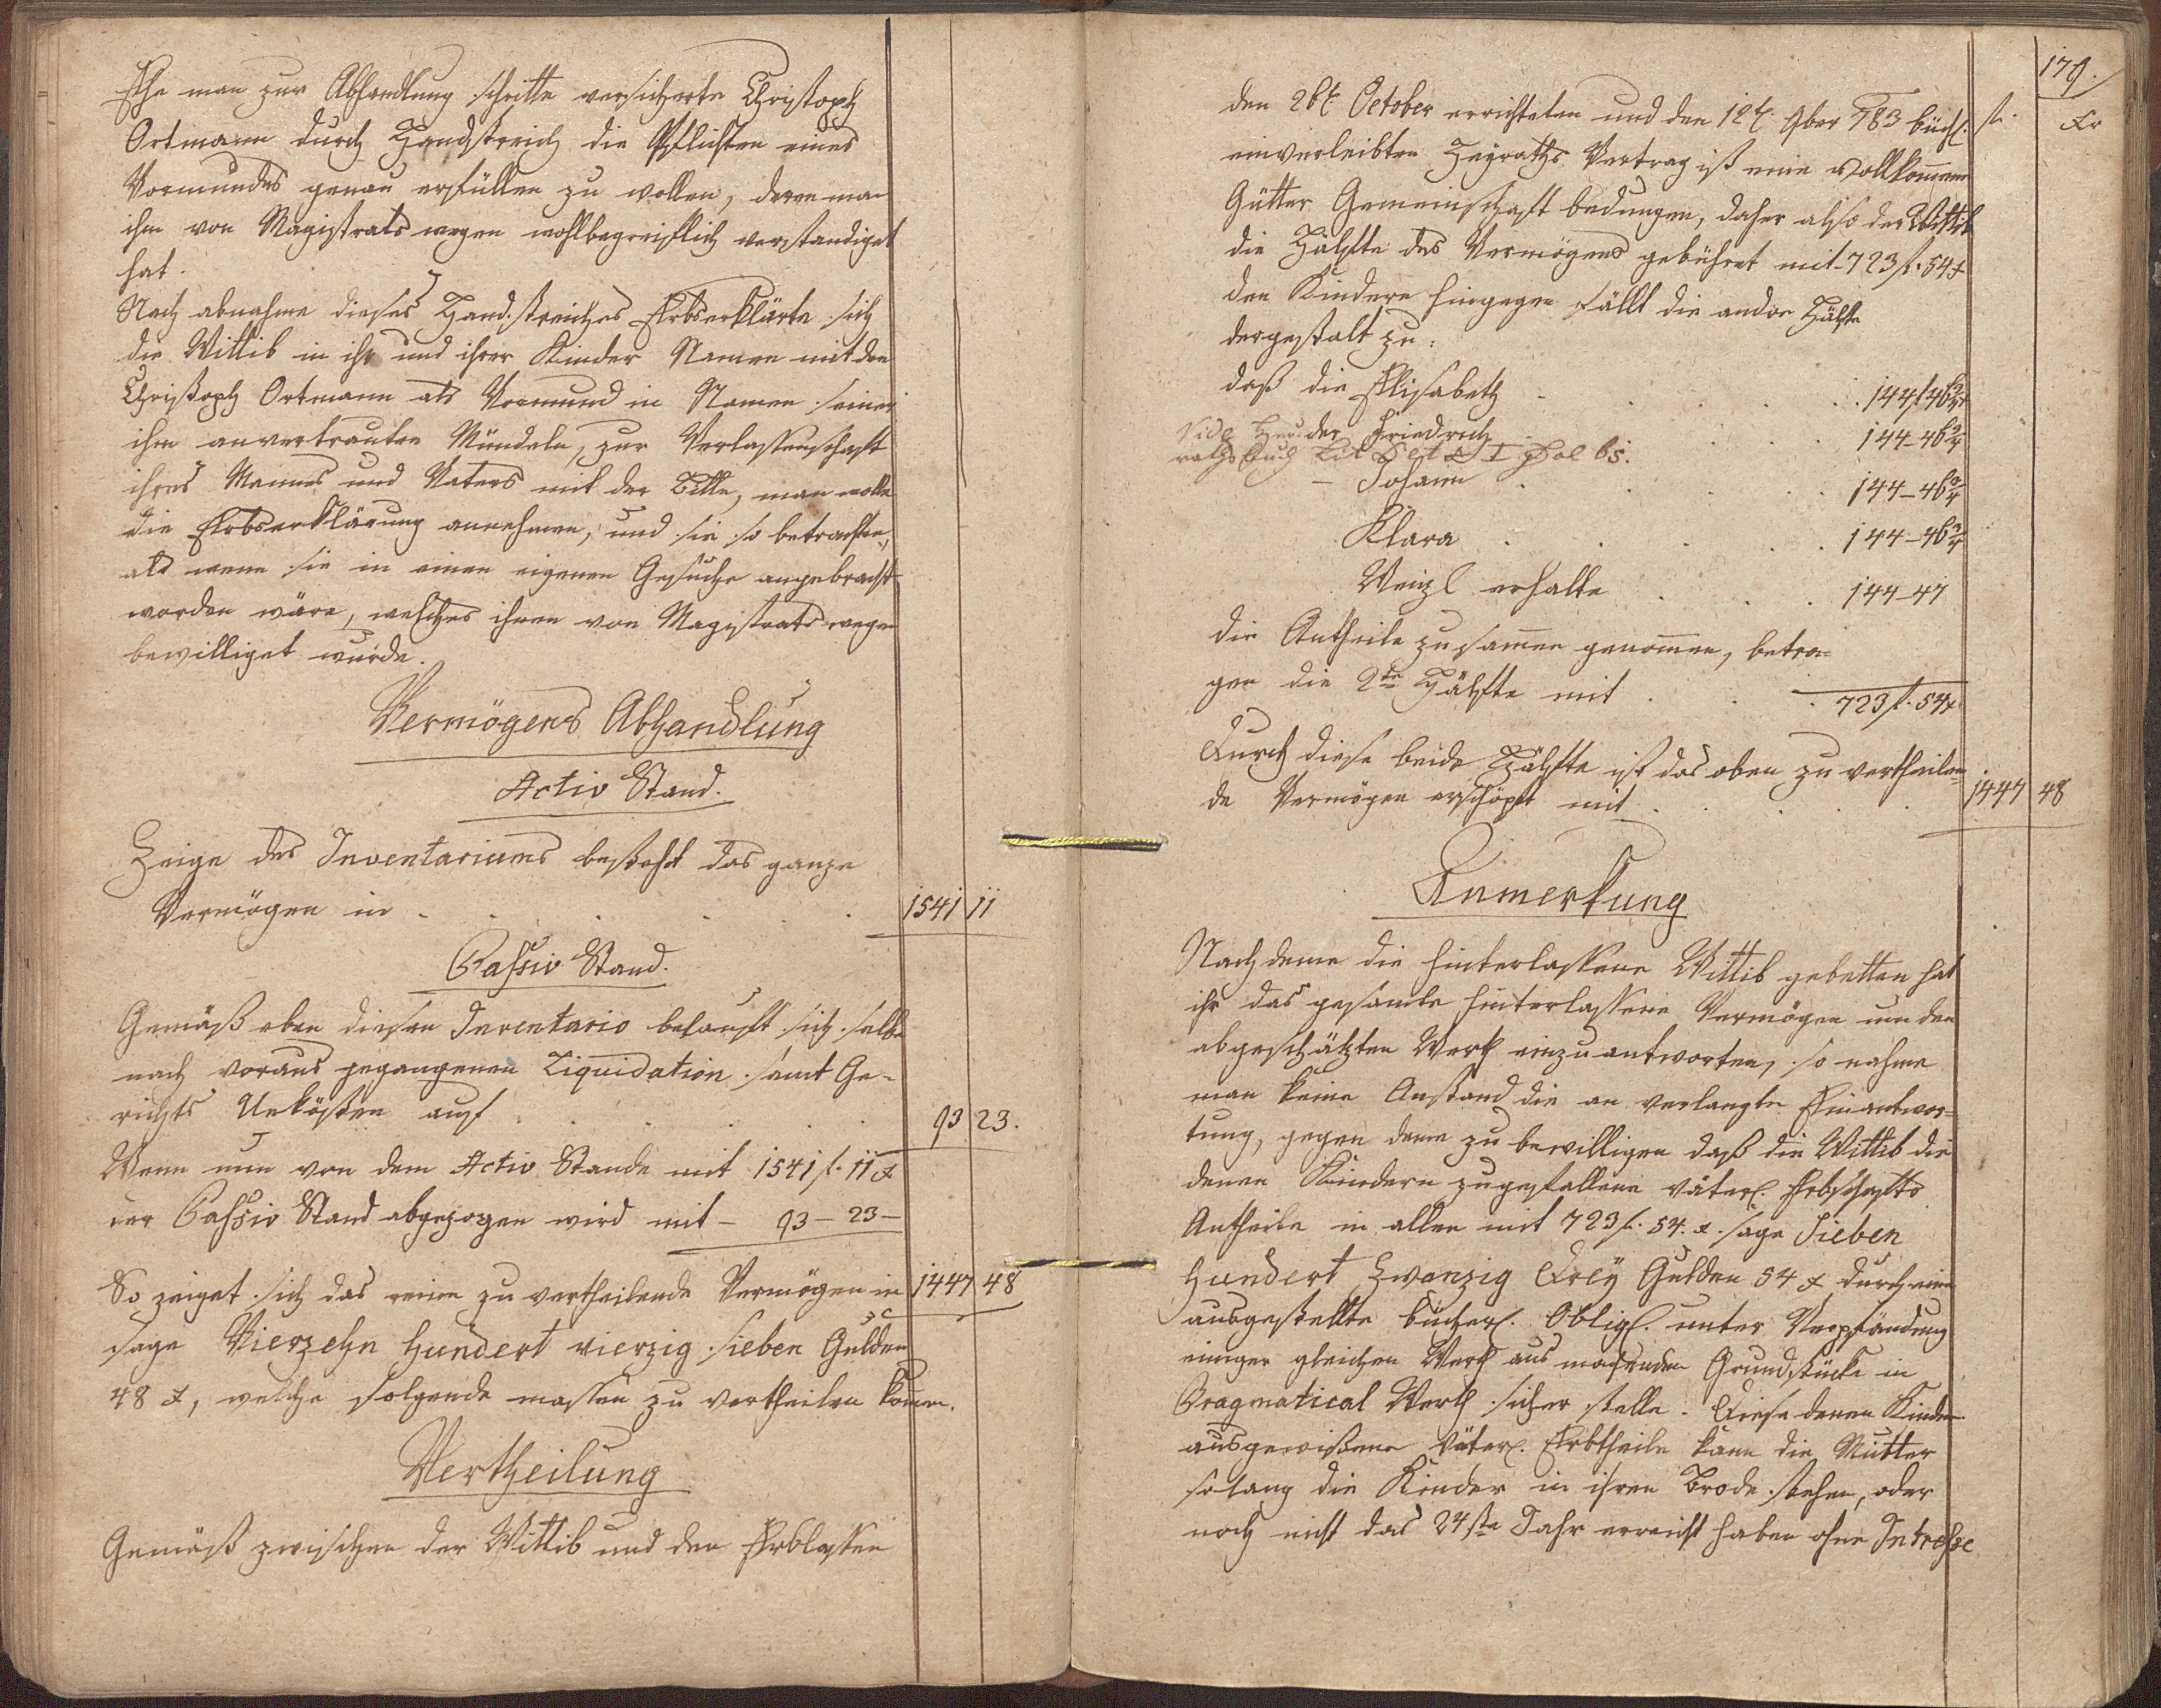 Ehe man zur Abhandlung schritte versicherte Christoph
Ortmann durch Handstreich die Pflichten eines
Vormundes genau erfüllen zu wollen, deren man
ihm von Magistrats wegen wohlbegreiflich verstandiget
hat.
Nach abnahme dieses Handstreiches Erbserklärte sich
die Wittib in ihr und ihrer Kinder Namen mit den
Christoph Ortmann als Vormund in Namen seiner
ihm anvertrauten Mündeln, zur Verlassenschaft
ihres Mannes und Vaters mit der Bitte, man wolle
die Erbserklärung annehmen, und sie so betrachten,
als wenn sie in einen eigenen Gesuche angebracht
worden wäre, welches ihnen von Magistrats wegen
bewilliget wurde.
Vermögens Abhandlung
Activ Stand.
Zeige des Inventariums bestehet das ganze
Vermögen in . . . . . 1541 11
Passiv Stand.
Gemäß eben diesen Inventario belauft sich selbe
nach voraus gegangenen Liquidation samt Ge-
richts Unkösten auf . . . . 93 23.
Wenn nun von dem Activ Stande mit 1541 f. 11 x
der Passiv Stand abgezogen wird mit – 93 – 23 –
So zeiget sich das reine zu vertheilende Vermögen in 1447 48
sage Vierzehn Hundert vierzig sieben Gulden
48 x, welche folgende massen zu vertheilen komen.
Vertheilung
Gemäß zwischen der Wittib und den Erblassen
179.
f. Xr
den 26t. October errichteten und den 12t. 9ber 783 büchl.
einverleibten Heyraths Vertrag ist eine vollkomene
Gütter Gemeinschaft bedungen, daher also der Wittib
die Hälfte des Vermögens gebühret mit – 723 f. 54 x
den Kindern hingegen fällt die andre Hälfte
dergestalt zu:
daß die Elisabeth . . . . 144 f 46 3/4 x
Vide Heu- der Friedrich . . . 144 – 46 3/4
raths Buch Lit I Fol 65.
– Johann . . . . 144 – 46 3/4
Klara . . . . 144 – 46 3/4
Wenzl erhalte . . . 144 – 47
die Antheile zusamen genomen, betra-
gen die 2te Hälfte mit . . . 723 f. 54 x
Durch diese beide Hälfte ist das oben zu vertheilen-
de Vermögen erschöpft mit . . . . 1447 48
Anmerkung
Nach deme die hinterlassene Wittib gebetten hat
ihr das gesamte hinterlassene Vermögen um den
abgeschätzten Werth einzuantworten, so nahme
man keine Anstand die an verlangte Einantwor-
tung, gegen deme zu bewilligen daß die Wittib die
denen Kindern zugefallene väterl. Erbschafts
Antheile in allen mit 723 f. 54. x. sage Sieben
Hundert Zwanzig Drey Gulden 54 x durch eine
ausgestellte bücherl. Obligl. unter Verpfändung
einiger gleichen Werth aus machenden Grundstücke in
Pragmatical Werth sicher stelle. Diese denen Kindern
ausgewißene väterl. Erbtheile kann die Mutter
solang die Kinder in ihren Brode stehen, oder
noch nicht das 24ste Jahr erreicht haben ohne Intreße